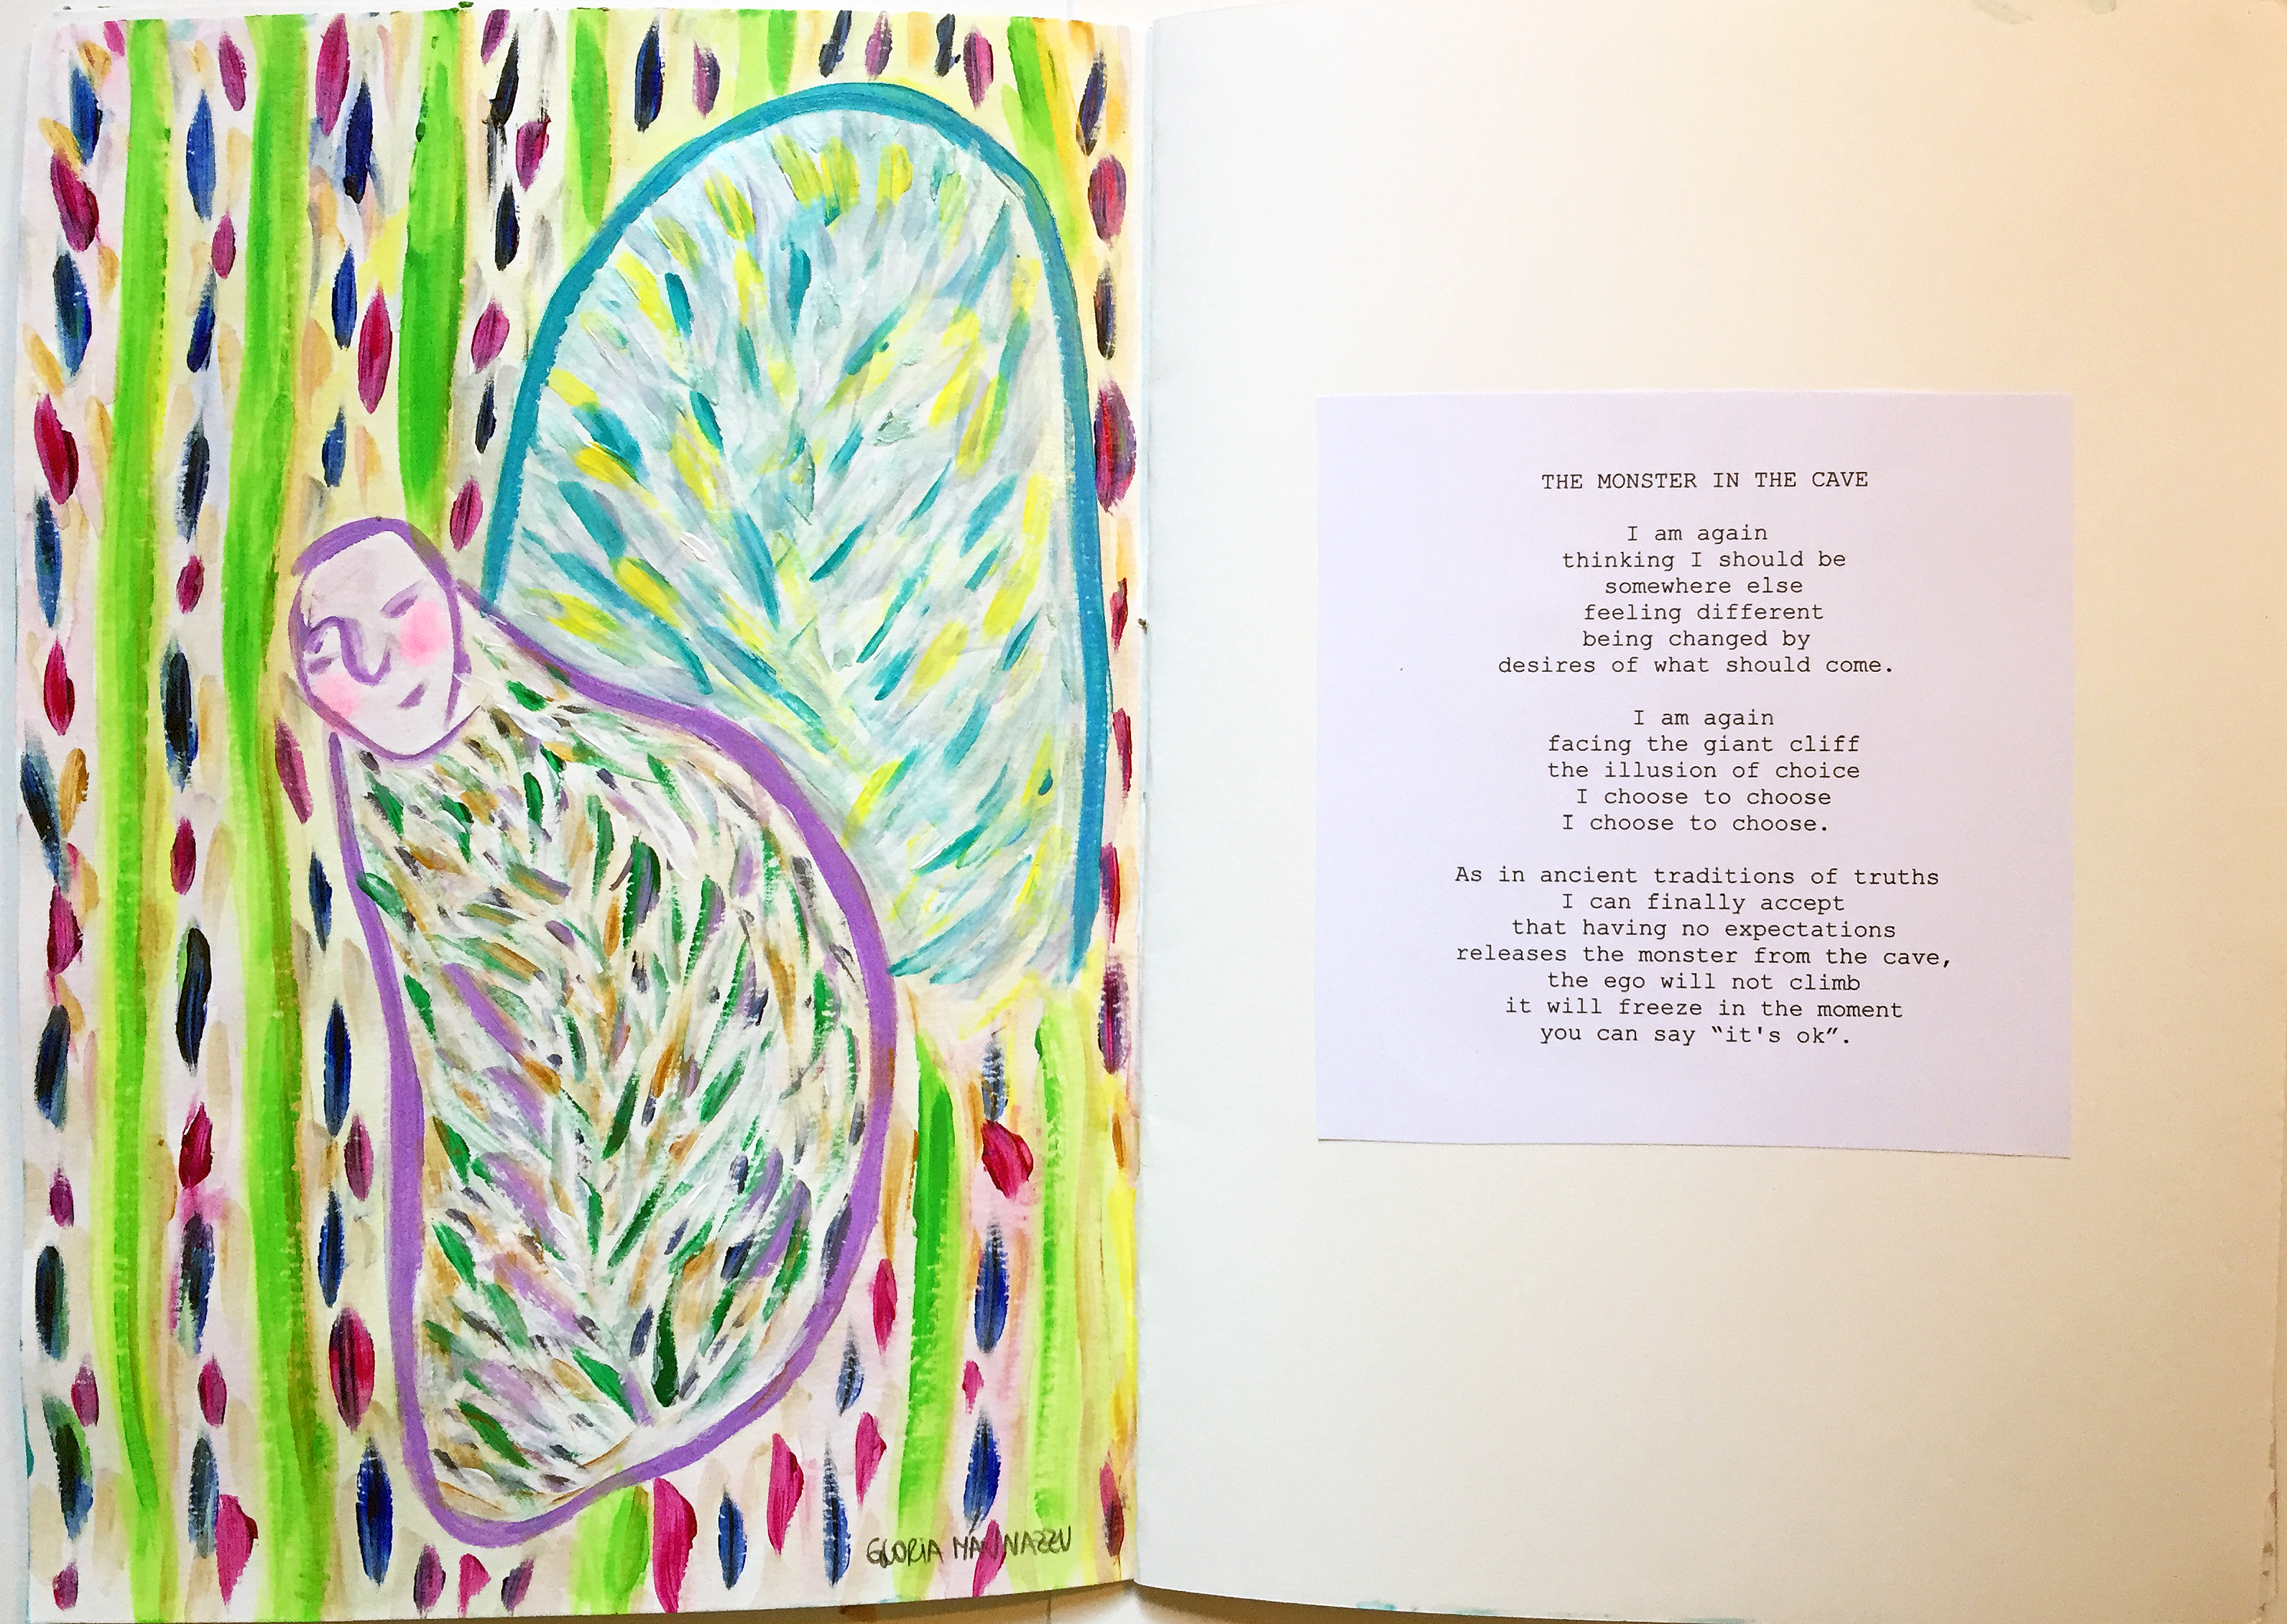 GLORIA MANNAZZU
THE MONSTER IN THE CAVE
I am again
thinking I should be
somewhere else
feeling different
being changed by
desires of what should come.
I am again
facing the giant cliff
the illusion of choice
I choose to choose
I choose to choose.
As in ancient traditions of truths
I can finally accept
that having no expectations
releases the monster from the cave,
the ego will not climb
it will freeze in the moment
you can say “it's ok”.